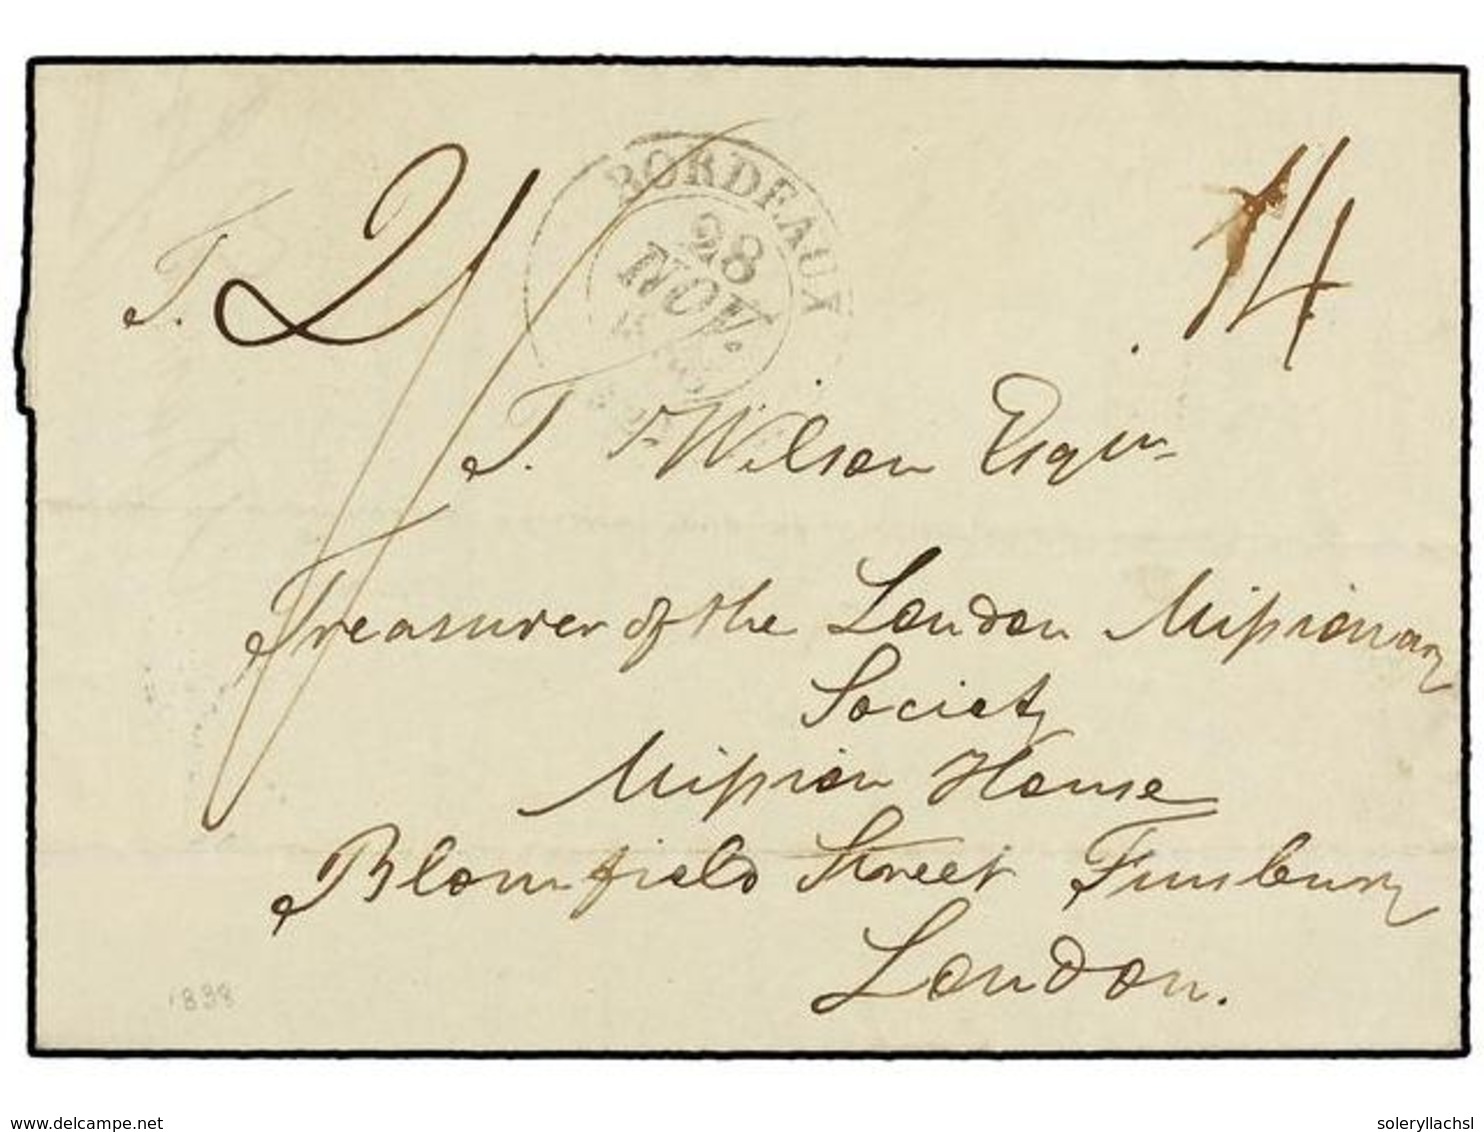 T. 2/
14
BORDEAUX
28
NOV.
T. Wilson Esqur
Treasurer of the London Missionary
Society
Mission House
Blomfield Street Finsbury
London.
1838
delcampe.net
soleryllachsl